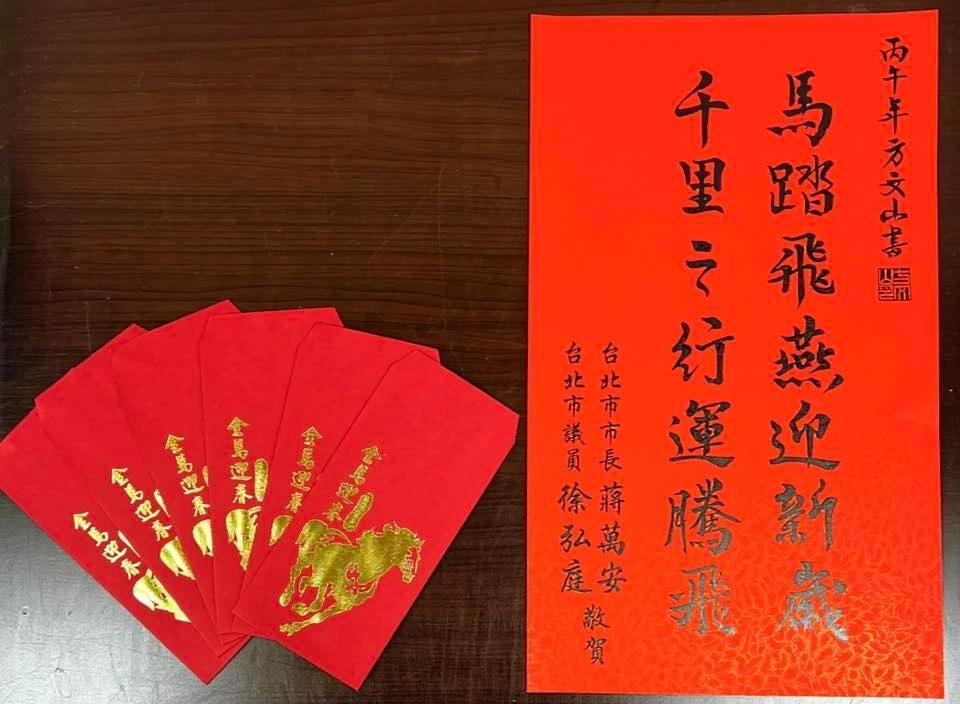 丙午年方文山書
馬踏飛燕迎新歲
千里之行運騰飛
台北市市長 蔣萬安
台北市議員 徐弘庭 敬賀
金馬迎春
金馬迎春
金馬迎春
金馬迎春
金馬迎春
金馬迎春